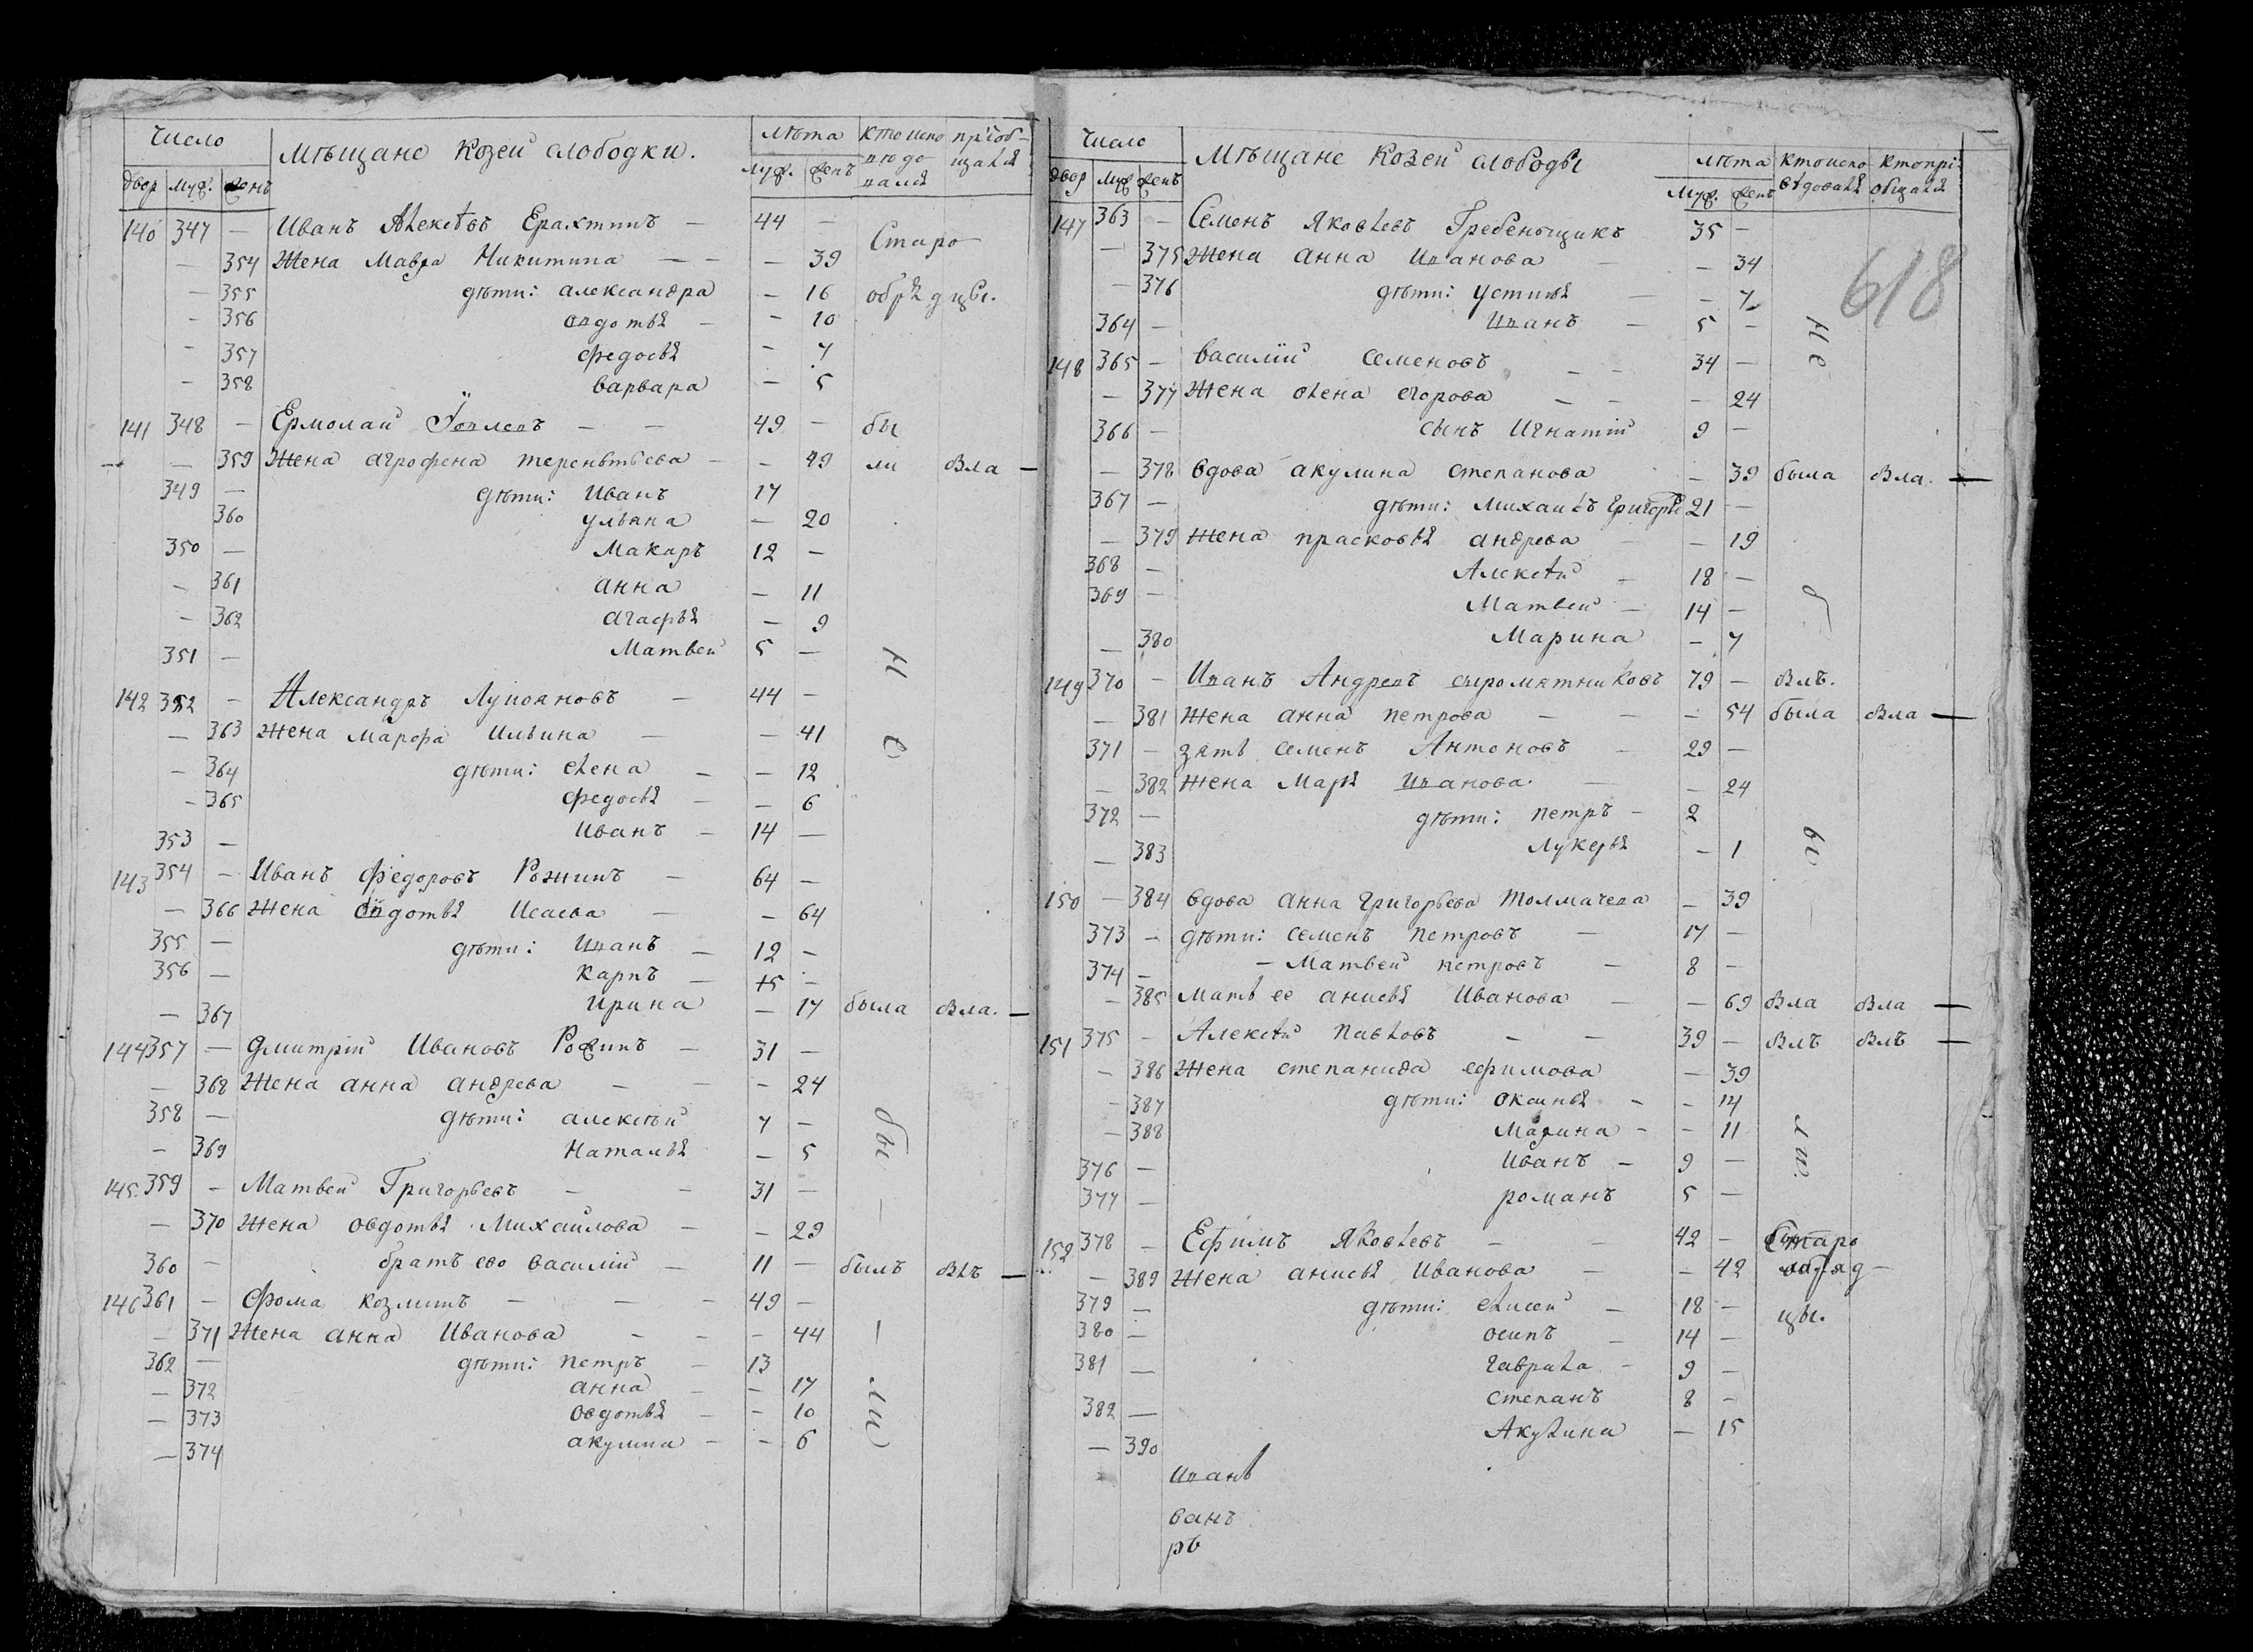 число
мѣщане козей слободки.
лѣта
кто испо
пріоб-
двор муж. женъ
муж. женъ
вѣдо
щался
вался
140 347 — Иванъ Алексѣевъ Ерахтинъ — 44 —
Старо
— 354 Жена Мавра Никитина — — — 39
— 355 дѣти: александра — 16 обрядцы.
— 356 овдотья — — 10
— 357 федосья — 7
— 358 варвара — 5
141 348 — Ермолай — — 49 — бы
— 359 Жена агрофена терентьева — — 49 ли была —
349 — дѣти: Иванъ 17
360 ульяна — 20
350 — Макаръ 12 —
— 361 анна — 11
— 362 агафья — 9
351 — Матвей 5 —
не
142 352 — Александръ Лупояновъ — 44 —
— 363 Жена марфа Ильина — — 41
— 364 дѣти: елена — — 12
— 365 федосья — — 6
353 — Иванъ — 14 —
143 354 — Иванъ федоровъ Рожинъ — 64 —
— 366 Жена овдотья Исаева — — 64
355 — дѣти: Иванъ — 12 —
356 — карпъ — 15 —
— 367 ирина — 17 была была. —
144 357 — дмитрій Ивановъ Рожинъ — 31 —
— 368 Жена анна андрева — — — 24
358 — дѣти: алексѣй 7 —
— 369 Наталья — 5
бы
145. 359 — Матвей Григорьевъ — — 31 —
— 370 Жена овдотья Михайлова — — 29
360 — братъ его василій — 11 — былъ былъ —
146 361 — фома козминъ — — — 49 —
— 371 Жена анна Иванова — — — 44
362 — дѣти: петръ — 13
— 372 анна — — 17
— 373 овдотья — — 10
— 374 акулина — — 6
ли
число
мѣщане козей слободы
лѣта
кто испо
кто прі
двор муж женъ
муж. женъ
вѣдовался
общался
618
147 363 — Семенъ Яковлевъ Гребеньщикъ 35 —
— 375 Жена анна Иванова — — 34
— 376 дѣти: устинья — — 7
364 — Иванъ — 5 —
не
148 365 — василій семеновъ — — 34 —
— 377 Жена олена егорова — — — 24
366 — сынъ Игнатій 9 —
— 378 вдова акулина степанова — 39 была была. —
367 — дѣти: михаилъ 21 —
— 379 Жена прасковья андрева — — 19
368 — Алексѣй — 18 —
369 — Матвей — 14 —
— 380 Марина — 7
149 370 — Иванъ Андревъ сыромятниковъ 79 — былъ.
— 381 Жена анна петрова — — — 54 была была —
371 — зять семенъ Антоновъ — 29 —
— 382 Жена Марья Иванова — — 24
372 — дѣти: петръ — 2
— 383 лукерья — 1
бы
150 — 384 вдова анна григорьева толмачева — 39
373 — дѣти: семенъ петровъ — 17 —
374 — — Матвей петровъ — 8 —
— 385 Мать ее анисья Иванова — — 69 была была —
151 375 — Алексѣй павловъ — — 39 — былъ былъ —
— 386 Жена степанида ефимова — 39
— 387 дѣти: оксинья — — 14
— 388 Марина — — 11
376 — Иванъ — 9 —
377 — романъ 5 —
ли.
152 378 — Ефимъ Яковлевъ — — 42 — Старо
— 389 Жена анисья Иванова — — 42 обряд—
379 — дѣти: елисей — 18 — цы.
380 — осипъ — 14 —
381 — гаврила — 9 —
382 — степанъ 8 —
— 390 Акулина — 15
Иванъ
ванъ
ръ